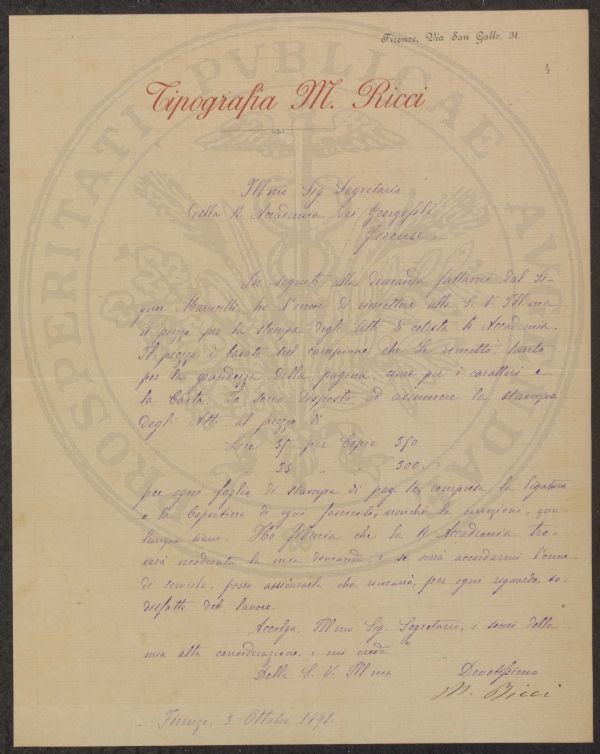 Firenze, Via San Gallo, 31.
4
Tipografia M. Ricci
Illmo Sig Segretario
della R Accademia dei Georgofili
Firenze.
In seguito alla domanda fattami dal Si-
gnor Marucelli, ho l'onore di rimettere alla S. V. Illma
il prezzo per la stampa degli Atti di codesta R. Accademia.
Il prezzo è basato sul campione che Le rimetto, tanto
per la grandezza della pagina, come per i caratteri e
la Carta. Io sarei disposto ad assumere la stampa
degli Atti al prezzo di
Lire 35 per Copie 350
33 " 300.
per ogni foglio di stampa di pag. 16, compresa la legatura
e la Copertina di ogni fascicolo, nonchè le correzioni, qua-
lunque siano. Ho fiducia che la R Accademia tro-
verà moderata la mia domanda, e se vorrà accordarmi l'onore
di servirla, posso assicurarla che rimarrà, per ogni riguardo so-
disfatta del lavoro.
Accolga, Illmo Sig. Segretario, i sensi della
mia alta considerazione e mi creda
Della S. V. Illma
Devotissimo
M. Ricci
Firenze, 3 Ottobre 1891.
PROSPERITATI PVBLICAE AVGENDAE